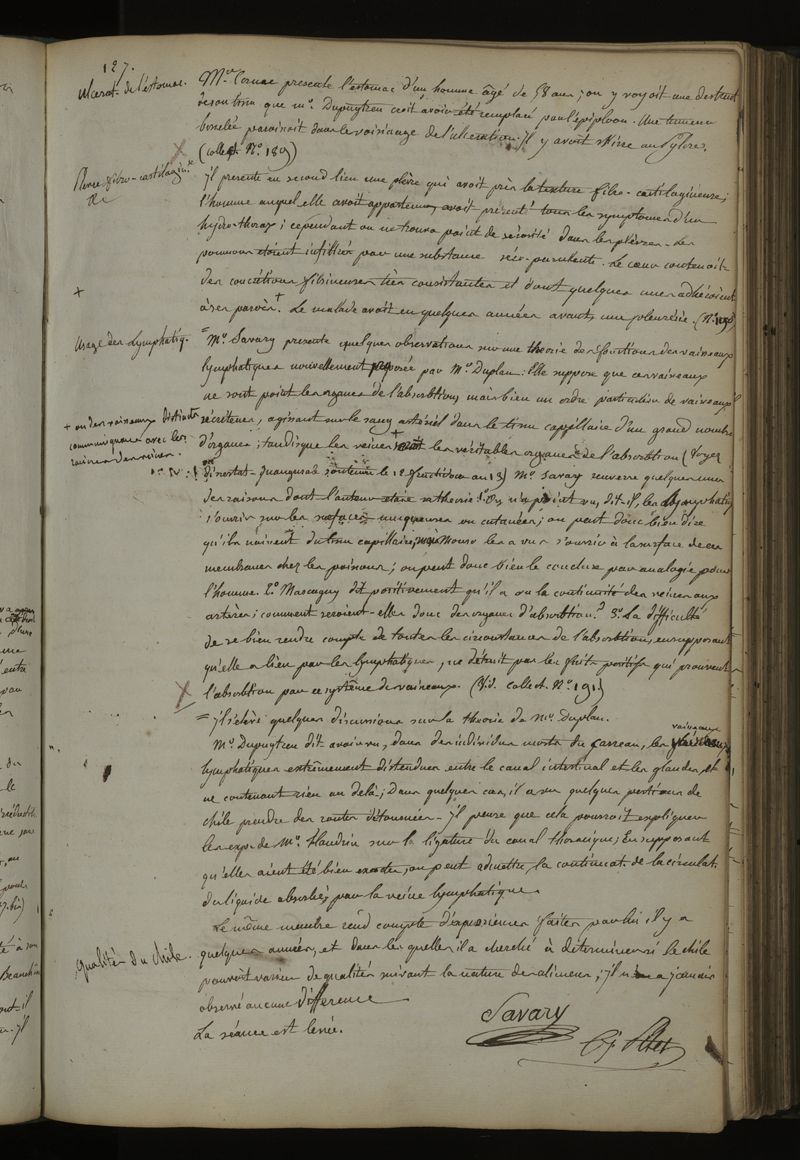 127.
ulcérat. de l'estomac.
Mr. Cornac presente l'estomac d'un homme âgé de 58 ans; on y voyoit une destruct
de son tissu que mr. Dupuytren croit avoir été remplacé par l'épiploon. Une tumeur
bosselée paroissoit dans le voisinage de l'ulcération. Il y avoit skirre au Pylore.
(collect. No. 189)
Plevre fibro-cartilagin.se
&c
Il presente en second lieu une plèvre qui avoit pris la texture fibro-cartilagineuse;
l'homme auquel elle avoit appartenu, avoit présenté tous les symptomes d'un
hydro-thorax; cependant on ne trouva point de sérosité dans les plèvres. Les
poumons étoient infiltrés par une substance séro-purulente. Le cœur contenoit
des concrétions fibrineuses très consistantes et dont quelques unes adhéroient
à ses parois. + Le malade avoit eu quelques années avant, une pleurésie. (No. 190)
+
Usage des Lymphatiq.
= Mr. Savary presente quelques observations sur une theorie des fonctions des vaisseaux
lymphatiques nouvellement proposée par Mr. Duplan: Elle suppose que ces vaisseaux
ne sont point les organes de l'absorbtion, mais bien un ordre particulier de vaisseaux
sécréteurs, agissant sur le sang artériel dans le tissu cappillaire d'un grand nombre
d'organes; tandis que les veines + sont les véritables organes de l'absorbtion (Voyez
+ ou des vaisseaux distincts
communiquans avec les
racines des veines.
dissertat. inaugurale soutenue le 12 fructidor an 13) Mr. Savary renverse quelques unes
des raisons dont l'auteur etaie sa theorie 1o. On n'a point vu, dit-il, les lymphatiq
s'ouvrir sur les surfaces muqueuses ou cutanées; on peut donc bien dire
qu'ils naissent du tissu capillaire, mais Monro les a vus s'ouvrir à la surface de ces
membranes chez les poissons; on peut donc bien le conclure par analogie pour
l'homme. 2o. Mascagny dit positivement qu'il a vu la continuité des veines aux
arteres; comment seroient-elles donc des organes d'absorbtion? 3o. La difficulté
de se bien rendre compte de toutes les circonstances de l'absorbtion, en supposant
qu'elle a lieu par les lymphatiques, ne détruit pas les faits positifs qui prouvent
l'absorbtion par ce système de vaisseaux. (Vid. collect. No. 191)
= Il s'élève quelques discussions sur la theorie de mr. Duplan.
Mr. Dupuytren dit avoir vu, dans des individus morts du carreau, les vaisseaux
lymphatiques extrêmement distendus entre le canal intestinal et les glandes, et
ne contenant rien au delà; Dans quelques cas, il a vu quelques portions de
chile prendre des routes détournées. Il pense que cela pourroit expliquer
les exp. de Mr. Flandrin sur la ligature du canal thoracique; En supposant
qu'elles aient été bien exactes, on peut admettre la continuat. de la circulat.
du liquide absorbé, par la veine lymphatique.
Le même membre rend compte d'expériences faites par lui, il y a
Qualités du chile.
quelques années, et dans les quelles il a cherché à déterminer si le chile
pouvoit varier de qualités suivant la nature des alimens; il n'en a jamais
observé aucune différence
La séance est levée.
Savary